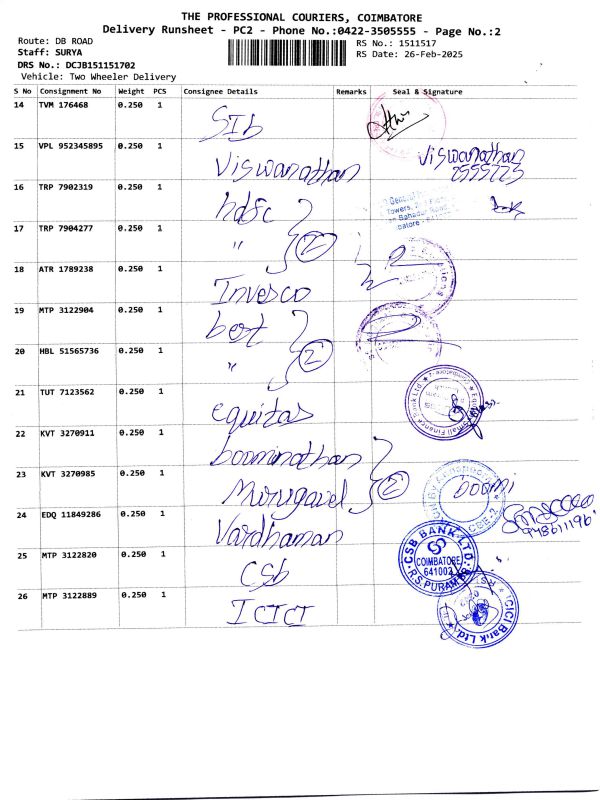 THE PROFESSIONAL COURIERS, COIMBATORE
Delivery Runsheet - PC2 - Phone No.:0422-3505555 - Page No.:2
Route: DB ROAD
RS No.: 1511517
Staff: SURYA
RS Date: 26-Feb-2025
DRS No.: DCJB151151702
Vehicle: Two Wheeler Delivery
S No Consignment No Weight PCS Consignee Details Remarks Seal & Signature
14 TVM 176468 0.250 1 SIb
15 VPL 952345895 0.250 1 Viswanathan Viswanathan
16 TRP 7902319 0.250 1 hdfc
17 TRP 7904277 0.250 1 " 2
18 ATR 1789238 0.250 1 Invesco
19 MTP 3122904 0.250 1
20 HBL 51565736 0.250 1 " 2
21 TUT 7123562 0.250 1 equitas
22 KVT 3270911 0.250 1 boominathan
23 KVT 3270985 0.250 1 Murugavel 2 boomi
24 EDQ 11849286 0.250 1 Vardhaman
25 MTP 3122820 0.250 1 CSb CSB BANK LTD. COIMBATORE 641002 R.S. PURAM BR
26 MTP 3122889 0.250 1 ICICI ICICI Bank Ltd.